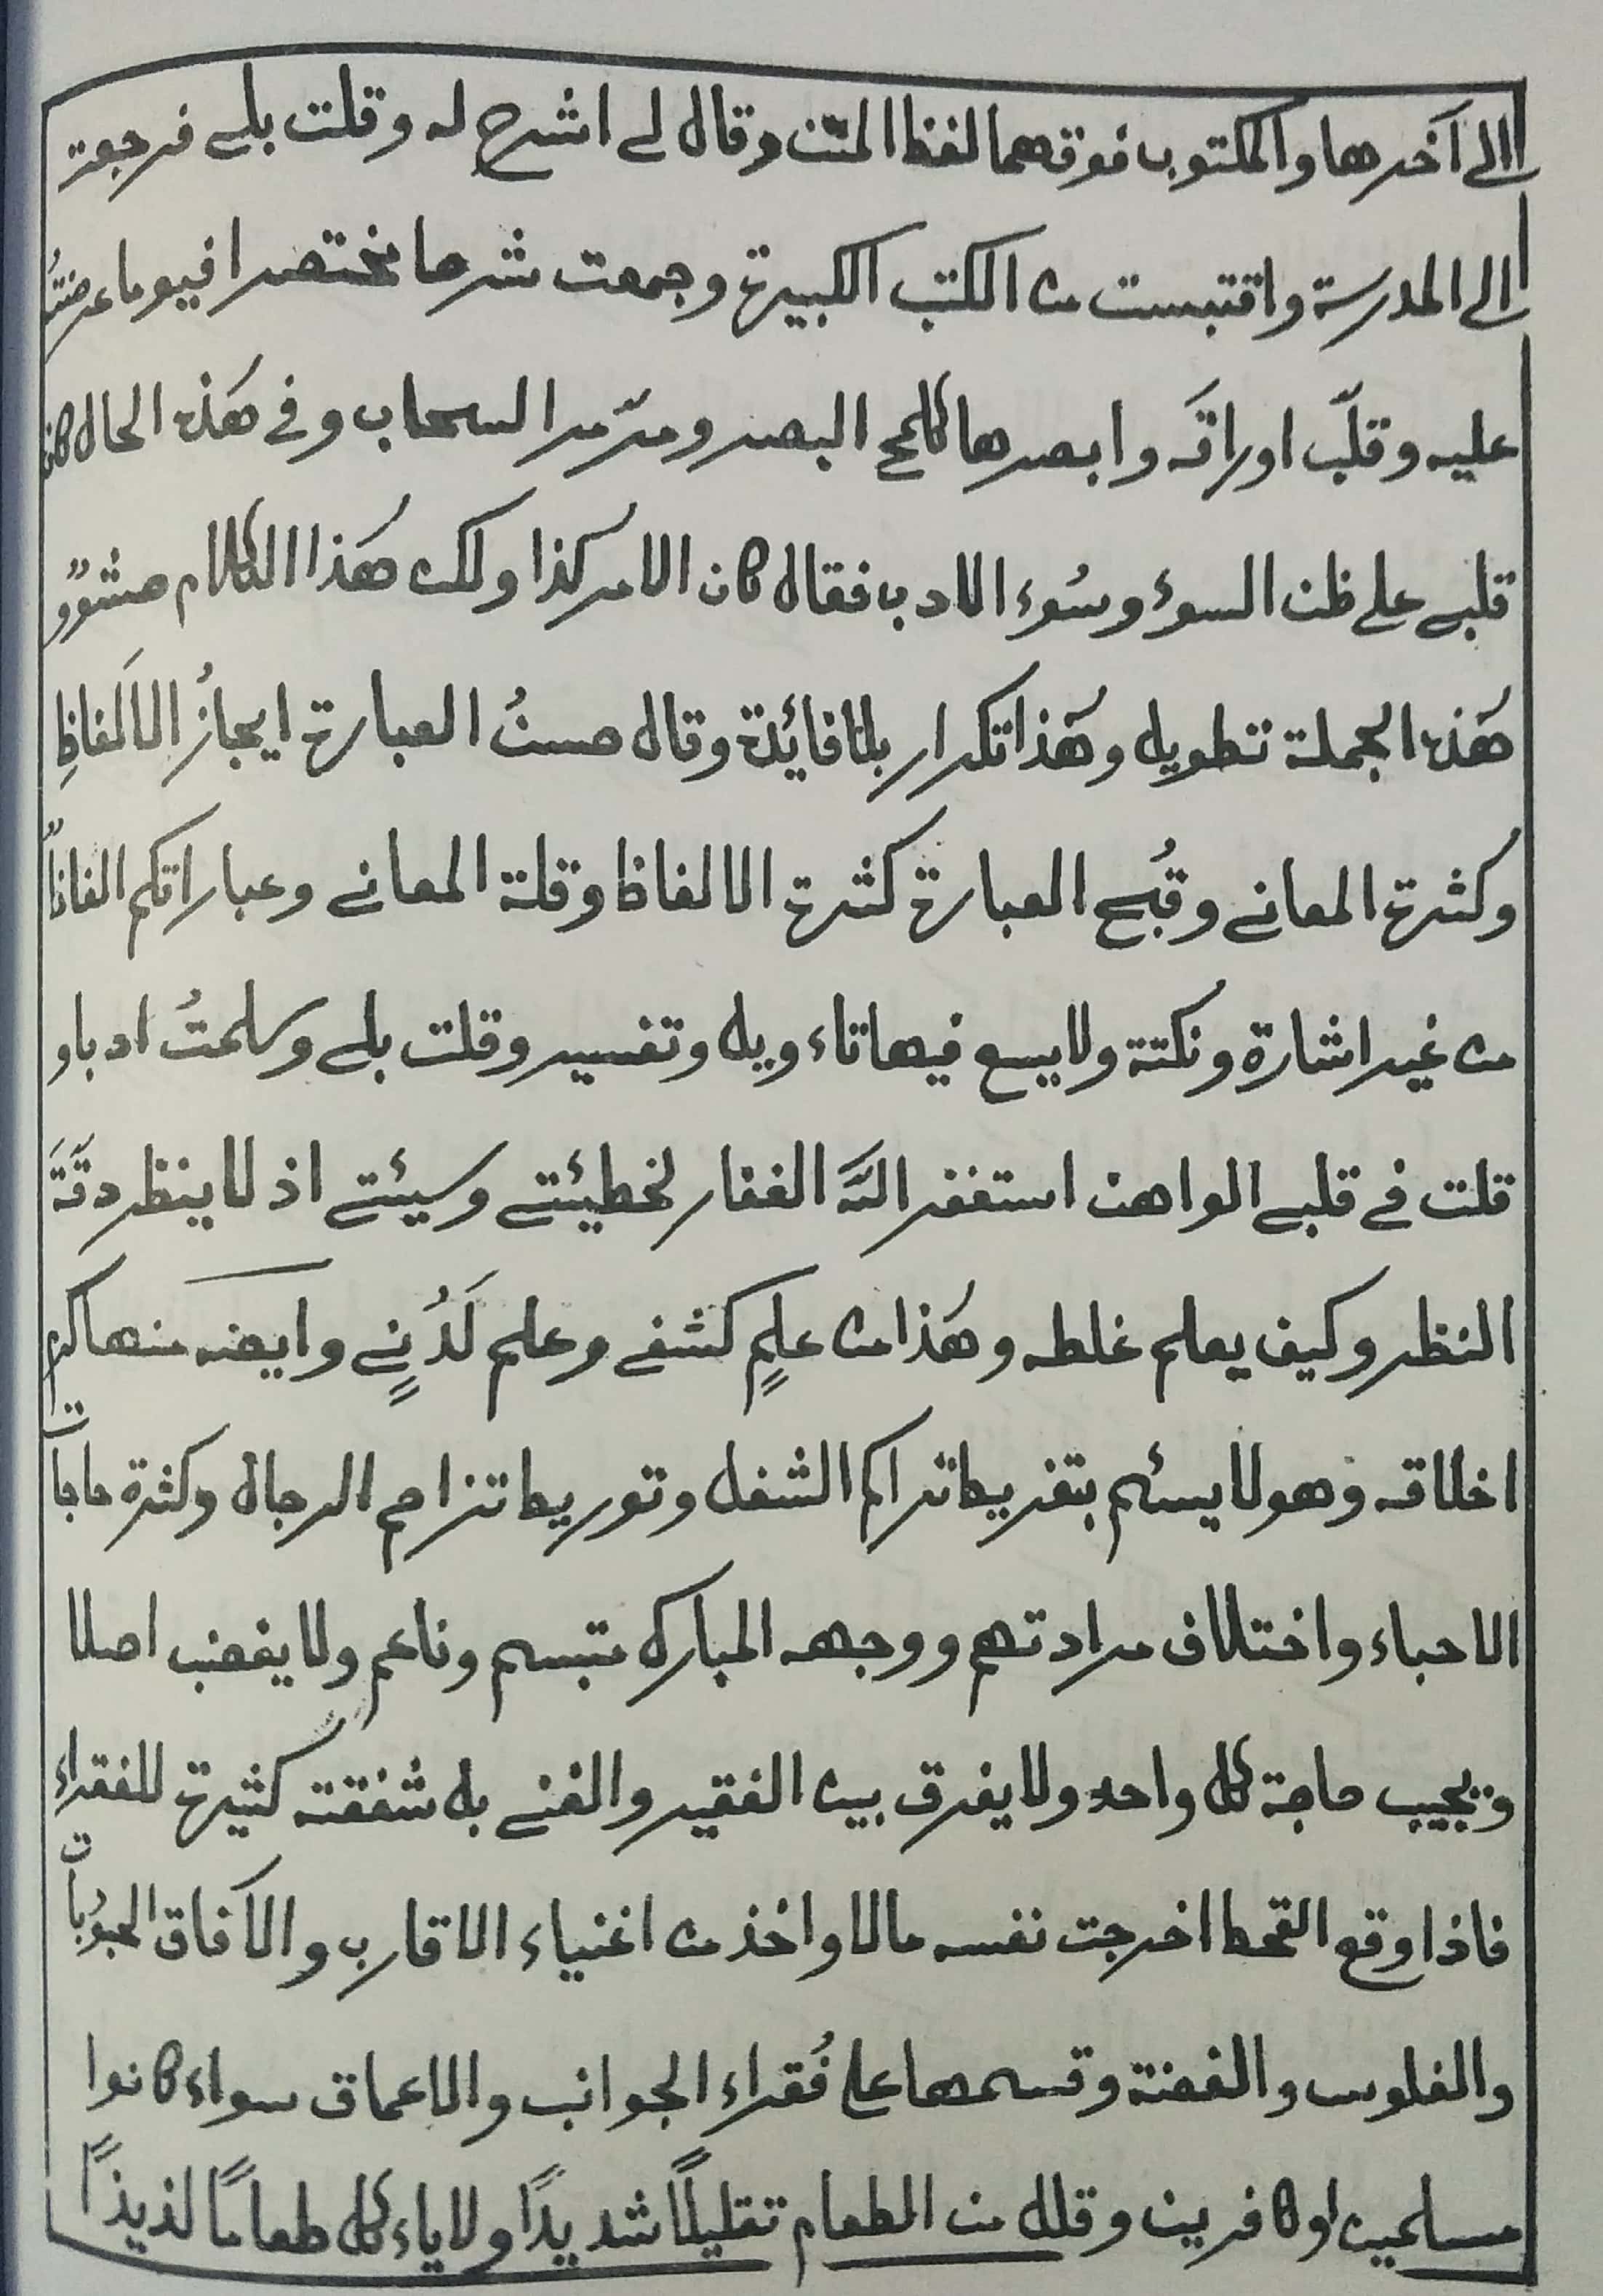 الى آخرها والمكتوب فوقهما لفظ المتن وقال لے اشرح له وقلت بلے فرجعت
الى المدرسة واقتبست من الكتب الكبيرة وجمعت شرحا مختصرا فيوما عرضتُ
عليه وقلّب اوراقَه وابصرها كلمح البصر ومرّ مر السحاب وفے هَذه الحال كان
قلبے على ظن السوء وسُوء الادب فقال كان الامر كذا ولكن هَذا الكلام حشوٌ و
هَذه الجملة تطويل وهَذا تكرار بلا فائدة وقال حسنُ العبارة ايجازُ الالَفاظِ
وكثرة المعانے وقُبح العبارة كثرة الالفاظ وقلة المعانے وعباراتكم الفاظٌ
من غير اشارة ونكتة ولا يسع فيها تاءويل وتفسير وقلت بلے وسلمتُ ادبا و
قلت فے قلبے الواهن استغفر اللهَ الغفار لخطيئتے وسيئتے اذ لا ينظر دقَةَ
النظر وكيف يعلم غلطه وهَذا من علمٍ كشفے وعلم لَدُنٍے وايضه منها كرم
اخلاقه وهو لا يسئم بتفريط تراكم الشغل وتوريط تزاحم الرجال وكثرة حاجات
الاحباء واختلاف مرادتهم ووجهه المبارك متبسم وناعم ولا يغضب اصلا
ويجيب حاجة كل واحد ولا يفرق بين الفقير والغنے بل شفقته كثيرة للفقراء
فاذا وقع القحط اخرجت نفسه مالا واخذ من اغنياء الاقارب والآفاق الحبُوبات
والفلوس والفضة وقسمها على فُقراء الجوانب والاعماق سواء كانوا
مسلمين او كافرين وقلل من الطعام تقليلًا شديدًا ولا ياءكل طعامًا لذيذًا